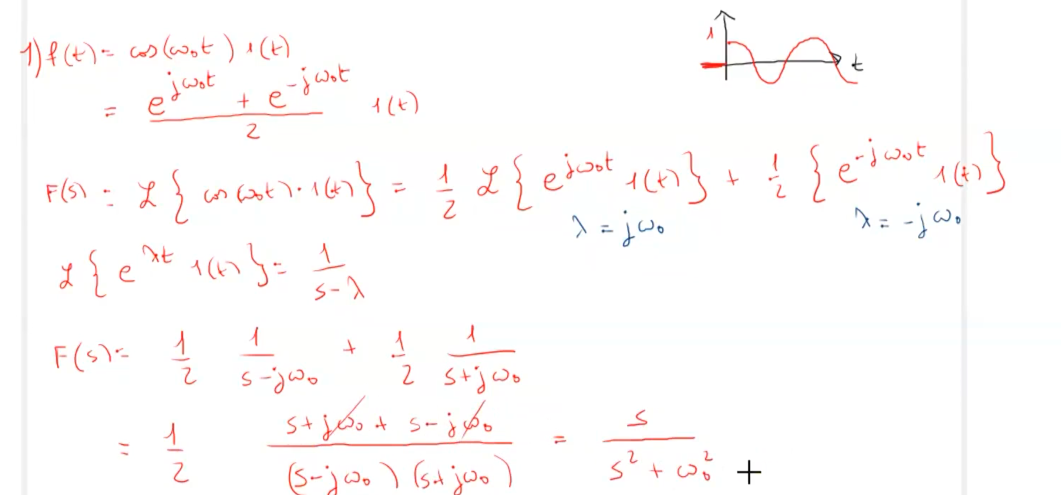 1) f(t) = cos(ω₀t) 1(t)
1
t
= (e^{jω₀t} + e^{-jω₀t})/2 1(t)
F(s) = ℒ{cos(ω₀t)·1(t)} = 1/2 ℒ{e^{jω₀t} 1(t)} + 1/2 {e^{-jω₀t} 1(t)}
λ = jω₀ λ = -jω₀
ℒ{e^{λt} 1(t)} = 1/(s-λ)
F(s) = 1/2 1/(s-jω₀) + 1/2 1/(s+jω₀)
= 1/2 (s+jω₀ + s-jω₀)/((s-jω₀)(s+jω₀)) = s/(s² + ω₀²)